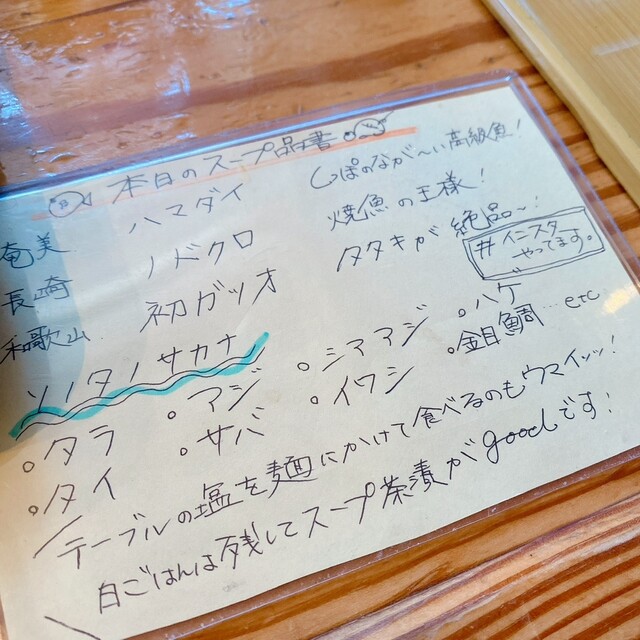 本日のスープ品書
奄美 ハマダイ しぽのなが〜い高級魚!
長崎 ノドクロ 焼魚の王様!
和歌山. 初ガツオ タタキが絶品〜!
#インスタやってます。
ソノタノサカナ
○タラ ○アジ ○シマアジ ○ハゲ
○タイ ○サバ ○イワシ ○金目鯛…etc
テーブルの塩を麺にかけて食べるのもウマイッ!
白ごはんは残してスープ茶漬がgoodです!